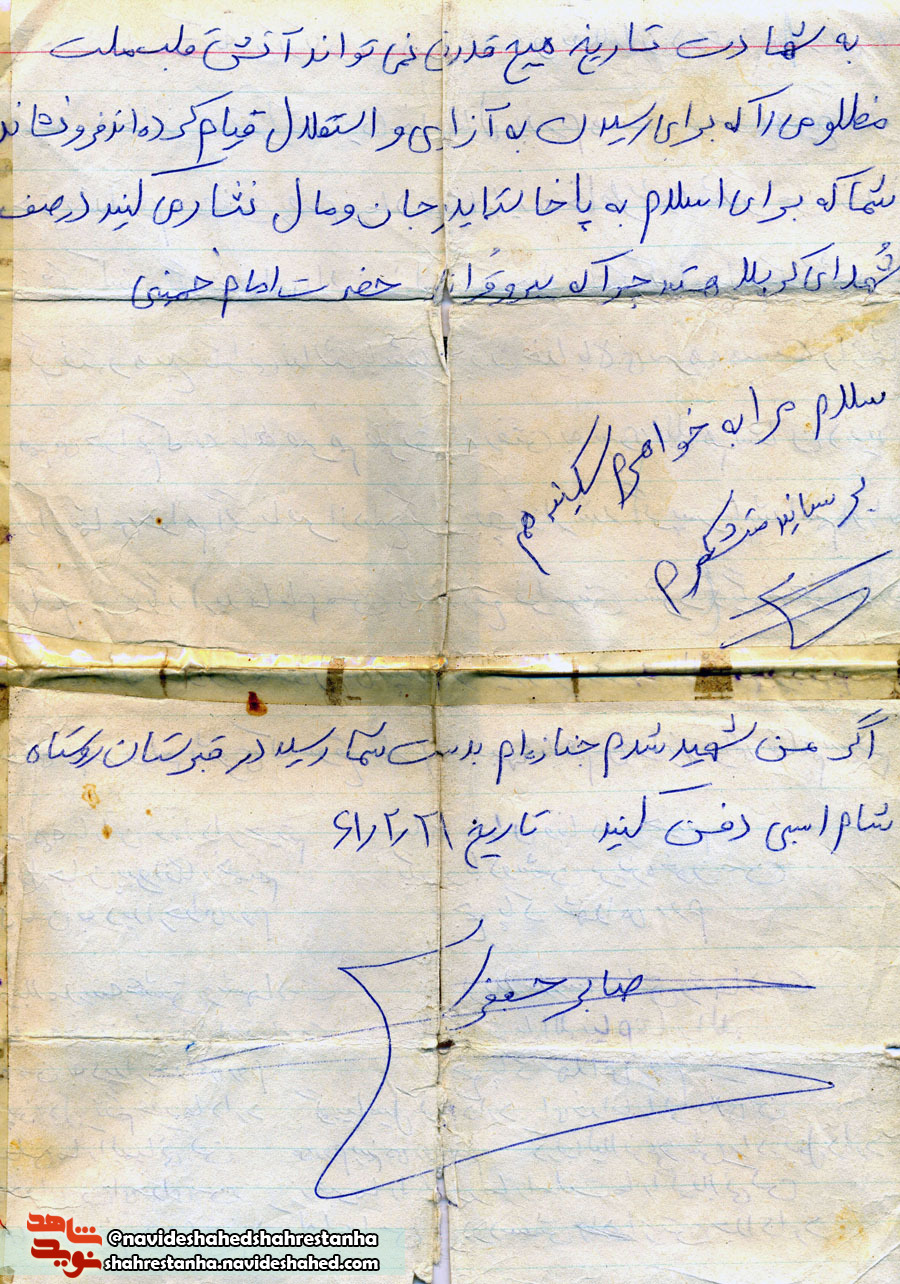 به شهادت تاریخ هیچ قدرتی نمی تواند آتش قلب ملت
مظلومی را که برای رسیدن به آزادی و استقلال قیام کرده اند فرو نشاند
شما که برای اسلام به پا خاسته‌اید جان و مال نثار می کنید در صف
شهدای کربلا هستید چرا که پیرو حضرت امام خمینی
سلام مرا به خواهرم سکینه هم
برسانید متشکرم
اگر من شهید شدم جنازه‌ام بدست شما رسید در قبرستان روستاه
شام اسبی دفن کنید تاریخ ۶۱٫۲٫۲۱
صابر جعفری
شاهد
نوید
@navideshahedshahrestanha
shahrestanha.navideshahed.com